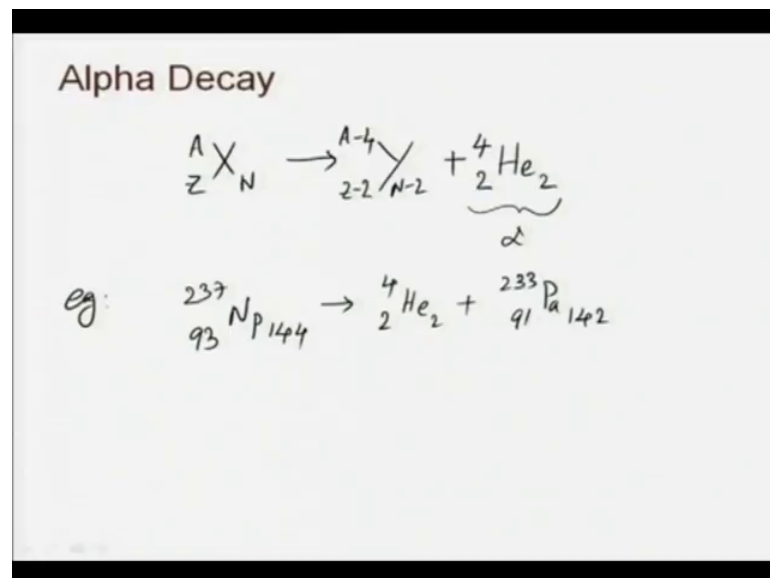 Alpha Decay
^A_Z X_N → ^{A-4}_{Z-2} Y_{N-2} + ^4_2 He_2
α
eg: ^{237}_{93} Np_{144} → ^4_2 He_2 + ^{233}_{91} Pa_{142}